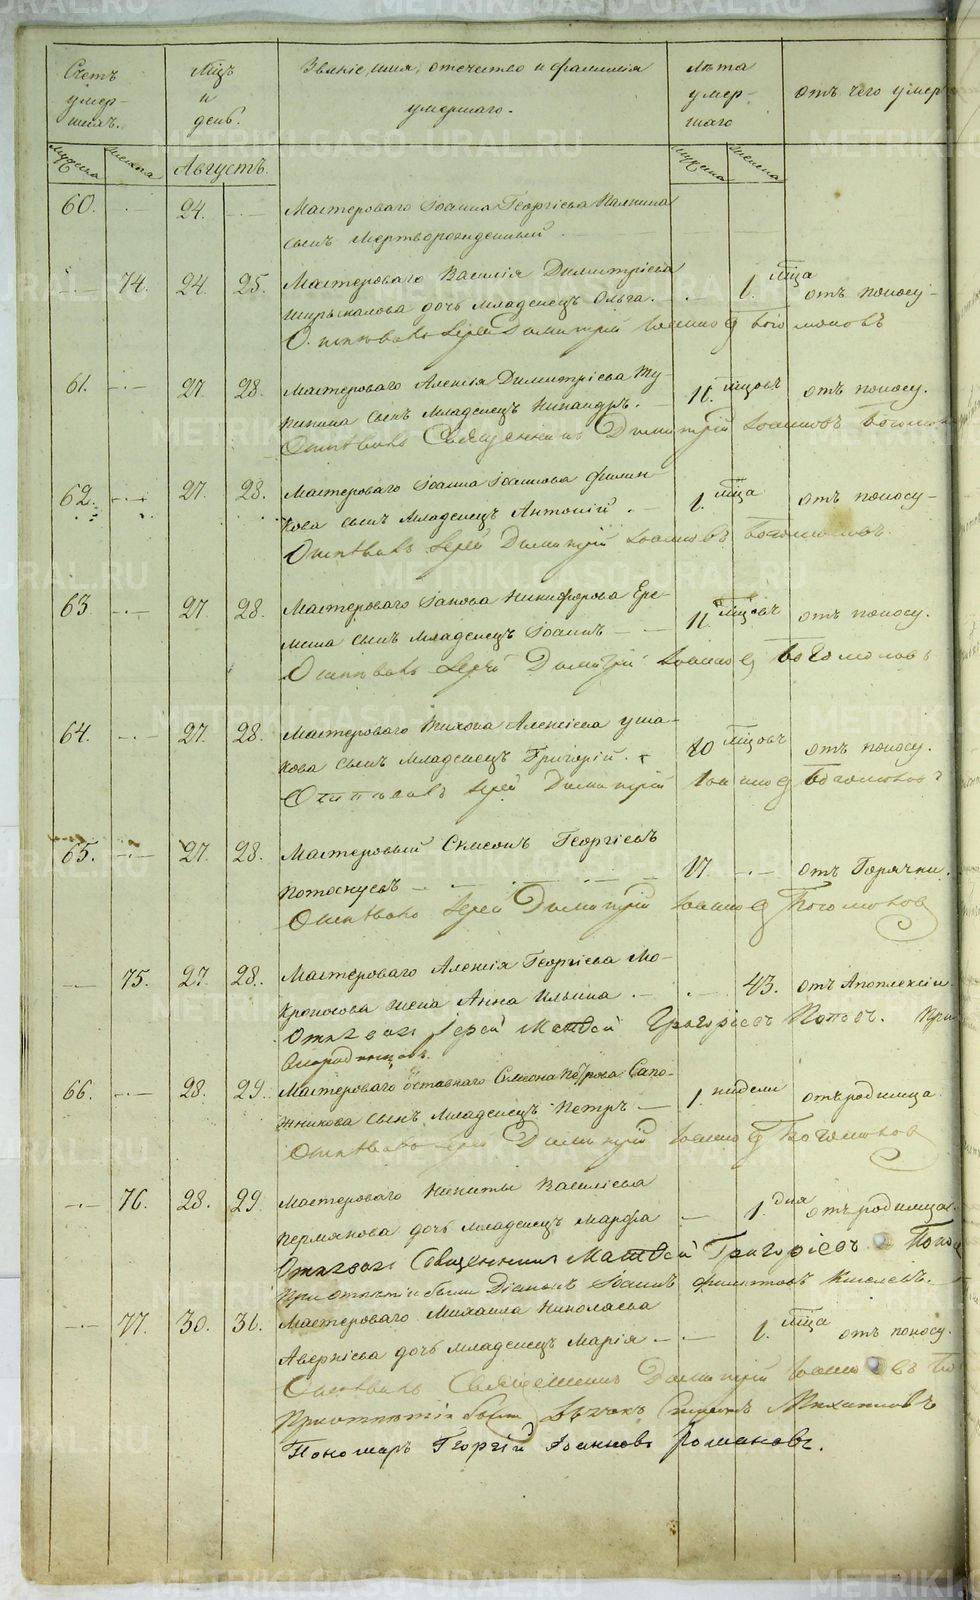 Счетъ умер-
шихъ.
Мѣцъ
и
день.
Званіе, имя, отечество и фамилія
умершаго.
Лѣта
умер-
шаго
отъ чего умер
Мужеска
Женска
Августъ.
Мужеска
Женска
60. - - 24. - -
Мастероваго Іоанна Георгіева
сынъ мертворожденный.
- - 74. 24. 25. Мастероваго Василія Димитріева
дочь младенецъ Ольга. - - 1. мѣца отъ поносу -
Отпѣвалъ Іерей Димитрій Іоанновъ Богомоловъ
61. - - 27. 28. Мастероваго Алексія Димитріева
сынъ младенецъ Никандръ. - 11. мѣцовъ отъ поносу.
Отпѣвалъ Священникъ Димитрій Іоанновъ
62. - - 27. 28. Мастероваго Іоанна Іоаннова Филин-
кова сынъ младенецъ Антоній. - 1. мѣца отъ поносу -
Отпѣвалъ Іерей Димитрій Іоанновъ Богомоловъ.
63 - - 27 28. Мастероваго Іакова Никифорова Ере-
сынъ младенецъ Іоаннъ - - 11. мѣцовъ отъ поносу.
Отпѣвалъ Іерей Димитрій Іоанновъ Богомоловъ
64. - - 27. 28. Мастероваго Тихона Алексіева Уша-
кова сынъ младенецъ Григорій. - 10 мѣцовъ отъ поносу.
Отпѣвалъ Іерей Димитрій Іоанновъ Богомоловъ
65. - - 27. 28. Мастеровый Симеонъ Георгіевъ
Потоскуевъ - 17. - - отъ Горячки.
Отпѣвалъ Іерей Димитрій Іоанновъ Богомоловъ
- - 75. 27. 28. Мастероваго Алексія Георгіева Мо-
кроносова жена Анна Ильина. - - 43. отъ Апоплексіи
Отпѣвалъ Іерей Матѳей Григоріевъ Поповъ. При
66. - - 28. 29. Мастероваго отставнаго Симеона Петрова Сапо-
жникова сынъ младенецъ Петръ - 1. недели отъ родимца.
Отпѣвалъ Іерей Димитрій Іоанновъ Богомоловъ
- - 76. 28. 29. Мастероваго Никиты Василіева
Пермякова дочь младенецъ Марфа - 1. дня отъ родимца.
Отпѣвалъ Священникъ Матѳей Григоріевъ Попо
При отпѣтіи были Діаконъ Іоаннъ Филиповъ Киселевъ.
- - 77. 30. 31. Мастероваго Михаила Николаева
Аверкіева дочь младенецъ Марія - - 1. мѣца отъ поносу.
Отпѣвалъ Священникъ Димитрій Іоанновъ Бо
При отпѣтіи были Дьячек Михаиловъ
Пономарь Георгій Іоанновъ Романовъ.
METRIKI.GASO-URAL.RU